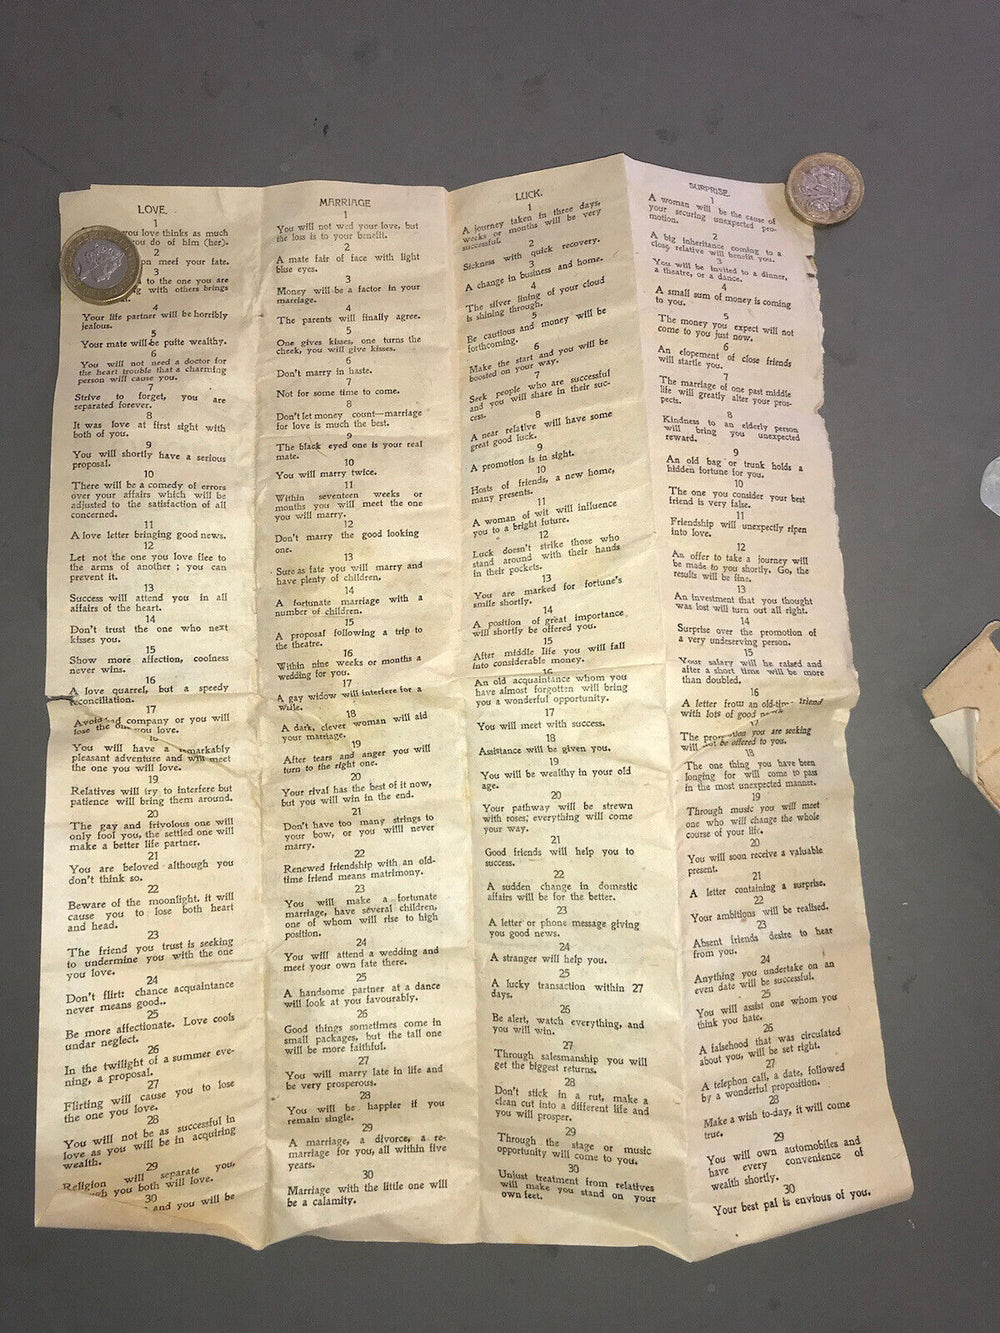 LOVE.
1
you love thinks as much
you do of him (her).
2
meet your fate.
3
to the one you are
with others brings
4
Your life partner will be horribly
jealous.
5
Your mate will be puite wealthy.
6
You will not need a doctor for
the heart trouble that a charming
person will cause you.
7
Strive to forget, you are
separated forever.
8
It was love at first sight with
both of you.
9
You will shortly have a serious
proposal.
10
There will be a comedy of errors
over your affairs which will be
adjusted to the satisfaction of all
concerned.
11
A love letter bringing good news.
12
Let not the one you love flee to
the arms of another ; you can
prevent it.
13
Success will attend you in all
affairs of the heart.
14
Don't trust the one who next
kisses you.
15
Show more affection, coolness
never wins.
16
A love quarrel, but a speedy
reconciliation.
17
Avoid bad company or you will
lose the one you love.
18
You will have a remarkably
pleasant adventure and will meet
the one you will love.
19
Relatives will try to interfere but
patience will bring them around.
20
The gay and frivolous one will
only fool you, the settled one will
make a better life partner.
21
You are beloved although you
don't think so.
22
Beware of the moonlight. it will
cause you to lose both heart
and head.
23
The friend you trust is seeking
to undermine you with the one
you love.
24
Don't flirt: chance acquaintance
never means good..
25
Be more affectionate. Love cools
undar neglect.
26
In the twilight of a summer eve-
ning, a proposal.
27
Flirting will cause you to lose
the one you love.
28
You will not be as successful in
love as you will be in acquiring
wealth.
29
Religion will separate you,
you both will love.
30
and you will be
MARRIAGE
1
You will not wed your love, but
the loss is to your benefit.
2
A mate fair of face with light
blue eyes.
3
Money will be a factor in your
marriage.
4
The parents will finally agree.
5
One gives kisses, one turns the
cheek, you will give kisses.
6
Don't marry in haste.
7
Not for some time to come.
8
Don't let money count—marriage
for love is much the best.
9
The black eyed one is your real
mate.
10
You will marry twice.
11
Within seventeen weeks or
months you will meet the one
you will marry.
12
Don't marry the good looking
one.
13
Sure as fate you will marry and
have plenty of children,
14
A fortunate marriage with a
number of children.
15
A proposal following a trip to
the theatre.
16
Within nine weeks or months a
wedding for you.
17
A gay widow will interfere for a
while.
18
A dark, clever woman will aid
your marriage.
19
After tears and anger you will
turn to the right one.
20
Your rival has the best of it now,
but you will win in the end.
21
Don't have too many strings to
your bow, or you will never
marry.
22
Renewed friendship with an old-
time friend means matrimony.
23
You will make a fortunate
marriage, have several children,
one of whom will rise to high
position.
24
You will attend a wedding and
meet your own fate there.
25
A handsome partner at a dance
will look at you favourably.
26
Good things sometimes come in
small packages, but the tall one
will be more faithful.
27
You will marry late in life and
be very prosperous.
28
You will be happier if you
remain single.
29
A marriage, a divorce, a re-
marriage for you, all within five
years.
30
Marriage with the little one will
be a calamity.
LUCK.
1
A journey taken in three days,
weeks or months will be very
successful.
2
Sickness with quick recovery.
3
A change in business and home.
4
The silver lining of your cloud
is shining through.
5
Be cautious and money will be
forthcoming.
6
Make the start and you will be
boosted on your way.
7
Seek people who are successful
and you will share in their suc-
cess.
8
A near relative will have some
great good luck.
9
A promotion is in sight.
10
Hosts of friends, a new home,
many presents.
11
A woman of wit will influence
you to a bright future.
12
Luck doesn't strike those who
stand around with their hands
in their pockets.
13
You are marked for fortune's
smile shortly.
14
A position of great importance
will shortly be offered you.
15
After middle life you will fall
into considerable money.
16
An old acquaintance whom you
have almost forgotten will bring
you a wonderful opportunity.
17
You will meet with success.
18
Assistance will be given you.
19
You will be wealthy in your old
age.
20
Your pathway will be strewn
with roses; everything will come
your way.
21
Good friends will help you to
success.
22
A sudden change in domestic
affairs will be for the better.
23
A letter or phone message giving
you good news.
24
A stranger will help you.
25
A lucky transaction within 27
days.
26
Be alert, watch everything, and
you will win.
27
Through salesmanship you will
get the biggest returns.
28
Don't stick in a rut, make a
clean cut into a different life and
you will prosper.
29
Through the stage or music
opportunity will come to you.
30
Unjust treatment from relatives
will make you stand on your
own feet.
SURPRISE.
1
A woman will be the cause of
your securing unexpected pro-
motion.
2
A big inheritance coming to a
close relative will benefit you.
3
You will be invited to a dinner,
a theatre, or a dance.
4
A small sum of money is coming
to you.
5
The money you expect will not
come to you just now.
6
An elopement of close friends
will startle you.
7
The marriage of one past middle
life will greatly alter your pros-
pects.
8
Kindness to an elderly person
will bring you unexpected
reward.
9
An old bag or trunk holds a
hidden fortune for you.
10
The one you consider your best
friend is very false.
11
Friendship will unexpectly ripen
into love.
12
An offer to take a journey will
be made to you shortly. Go, the
results will be fine.
13
An investment that you thought
was lost will turn out all right.
14
Surprise over the promotion of
a very undeserving person.
15
Your salary will be raised and
after a short time will be more
than doubled.
16
A letter from an old-time friend
with lots of good
17
The you are seeking
will not be offered to you.
18
The one thing you have been
longing for will come to pass
in the most unexpected manner.
19
Through music you will meet
one who will change the whole
course of your life.
20
You will soon receive a valuable
present.
21
A letter containing a surprise.
22
Your ambitions will be realised.
23
Absent friends desire to hear
from you.
24
Anything you undertake on an
even date will be successful.
25
You will assist one whom you
think you hate.
26
A falsehood that was circulated
about you, will be set right.
27
A telephon call, a date, followed
by a wonderful proposition.
28
Make a wish to-day, it will come
true.
29
You will own automobiles and
have every convenience of
wealth shortly.
30
Your best pal is envious of you.